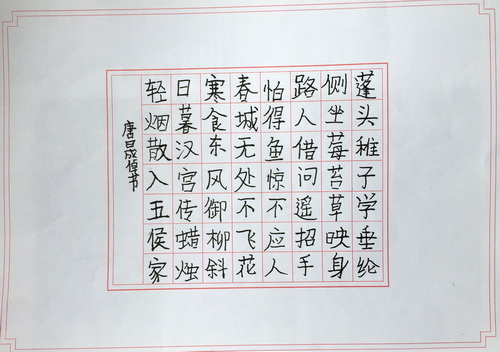 蓬头稚子学垂纶
侧坐莓苔草映身
路人借问遥招手
怕得鱼惊不应人
春城无处不飞花
寒食东风御柳斜
日暮汉宫传蜡烛
轻烟散入五侯家
唐晟倬书